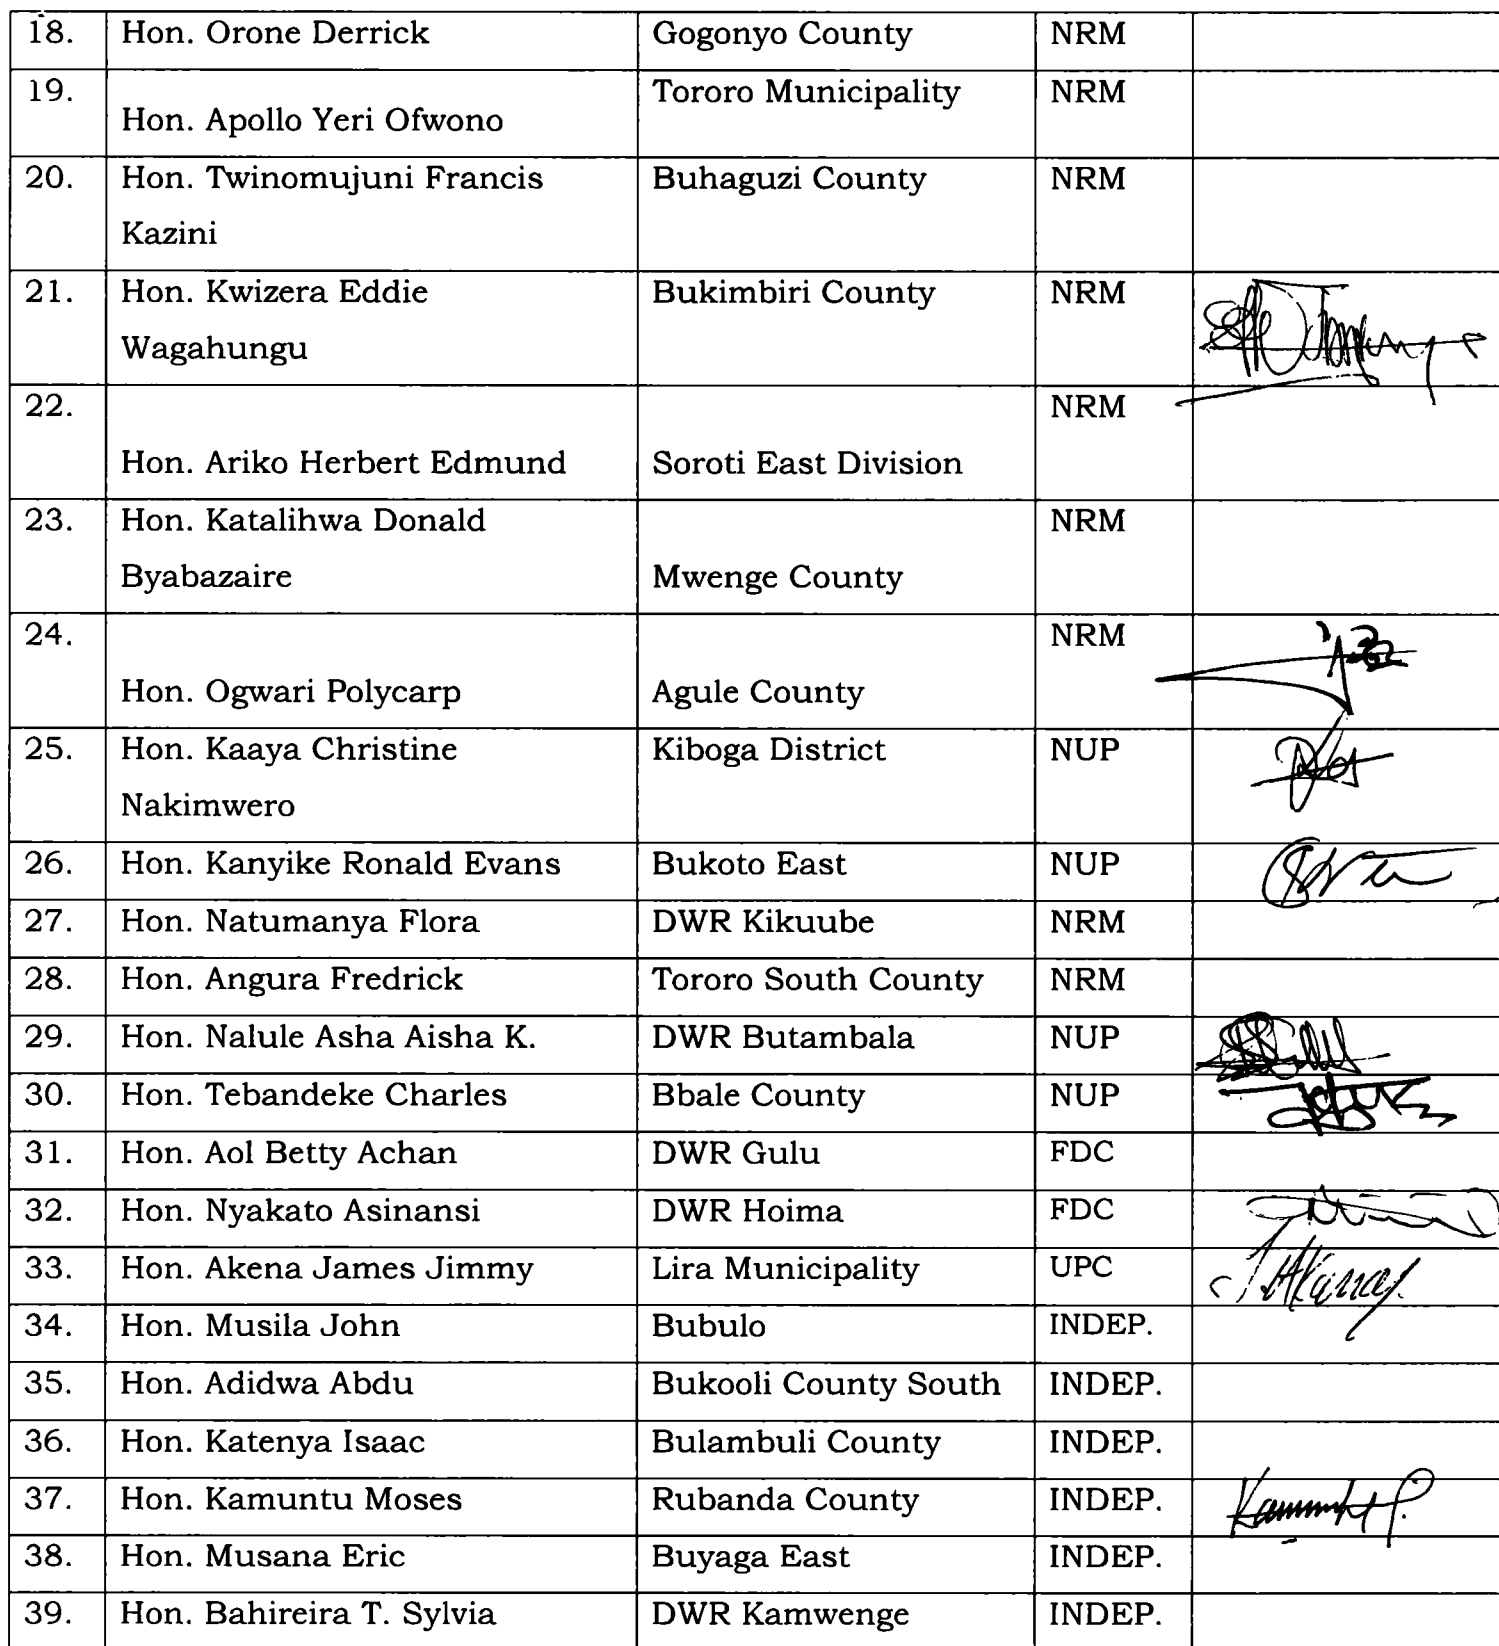 18. Hon. Orone Derrick Gogonyo County NRM
19. Hon. Apollo Yeri Ofwono Tororo Municipality NRM
20. Hon. Twinomujuni Francis Buhaguzi County NRM
Kazini
21. Hon. Kwizera Eddie Bukimbiri County NRM
Wagahungu
22. NRM
Hon. Ariko Herbert Edmund Soroti East Division
23. Hon. Katalihwa Donald NRM
Byabazaire Mwenge County
24. NRM
Hon. Ogwari Polycarp Agule County
25. Hon. Kaaya Christine Kiboga District NUP
Nakimwero
26. Hon. Kanyike Ronald Evans Bukoto East NUP
27. Hon. Natumanya Flora DWR Kikuube NRM
28. Hon. Angura Fredrick Tororo South County NRM
29. Hon. Nalule Asha Aisha K. DWR Butambala NUP
30. Hon. Tebandeke Charles Bbale County NUP
31. Hon. Aol Betty Achan DWR Gulu FDC
32. Hon. Nyakato Asinansi DWR Hoima FDC
33. Hon. Akena James Jimmy Lira Municipality UPC
34. Hon. Musila John Bubulo INDEP.
35. Hon. Adidwa Abdu Bukooli County South INDEP.
36. Hon. Katenya Isaac Bulambuli County INDEP.
37. Hon. Kamuntu Moses Rubanda County INDEP.
38. Hon. Musana Eric Buyaga East INDEP.
39. Hon. Bahireira T. Sylvia DWR Kamwenge INDEP.